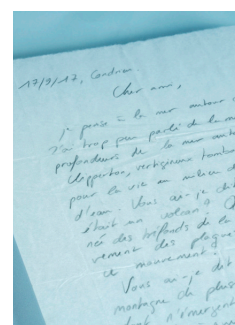 17/9/17, Condrieu.
Cher ami,
je pense à la mer autour d
J'ai trop peu parlé de la m
profondeurs de la mer auto
Clipperton, vertigineux tomba
pour la vie en milieu d
d'eau. Vous ai-je dit
était un volcan ?
née des tréfonds de la
vement des plaques
ce mouvement.
Vous ai-je dit
montagne de plus
dont n'émergent